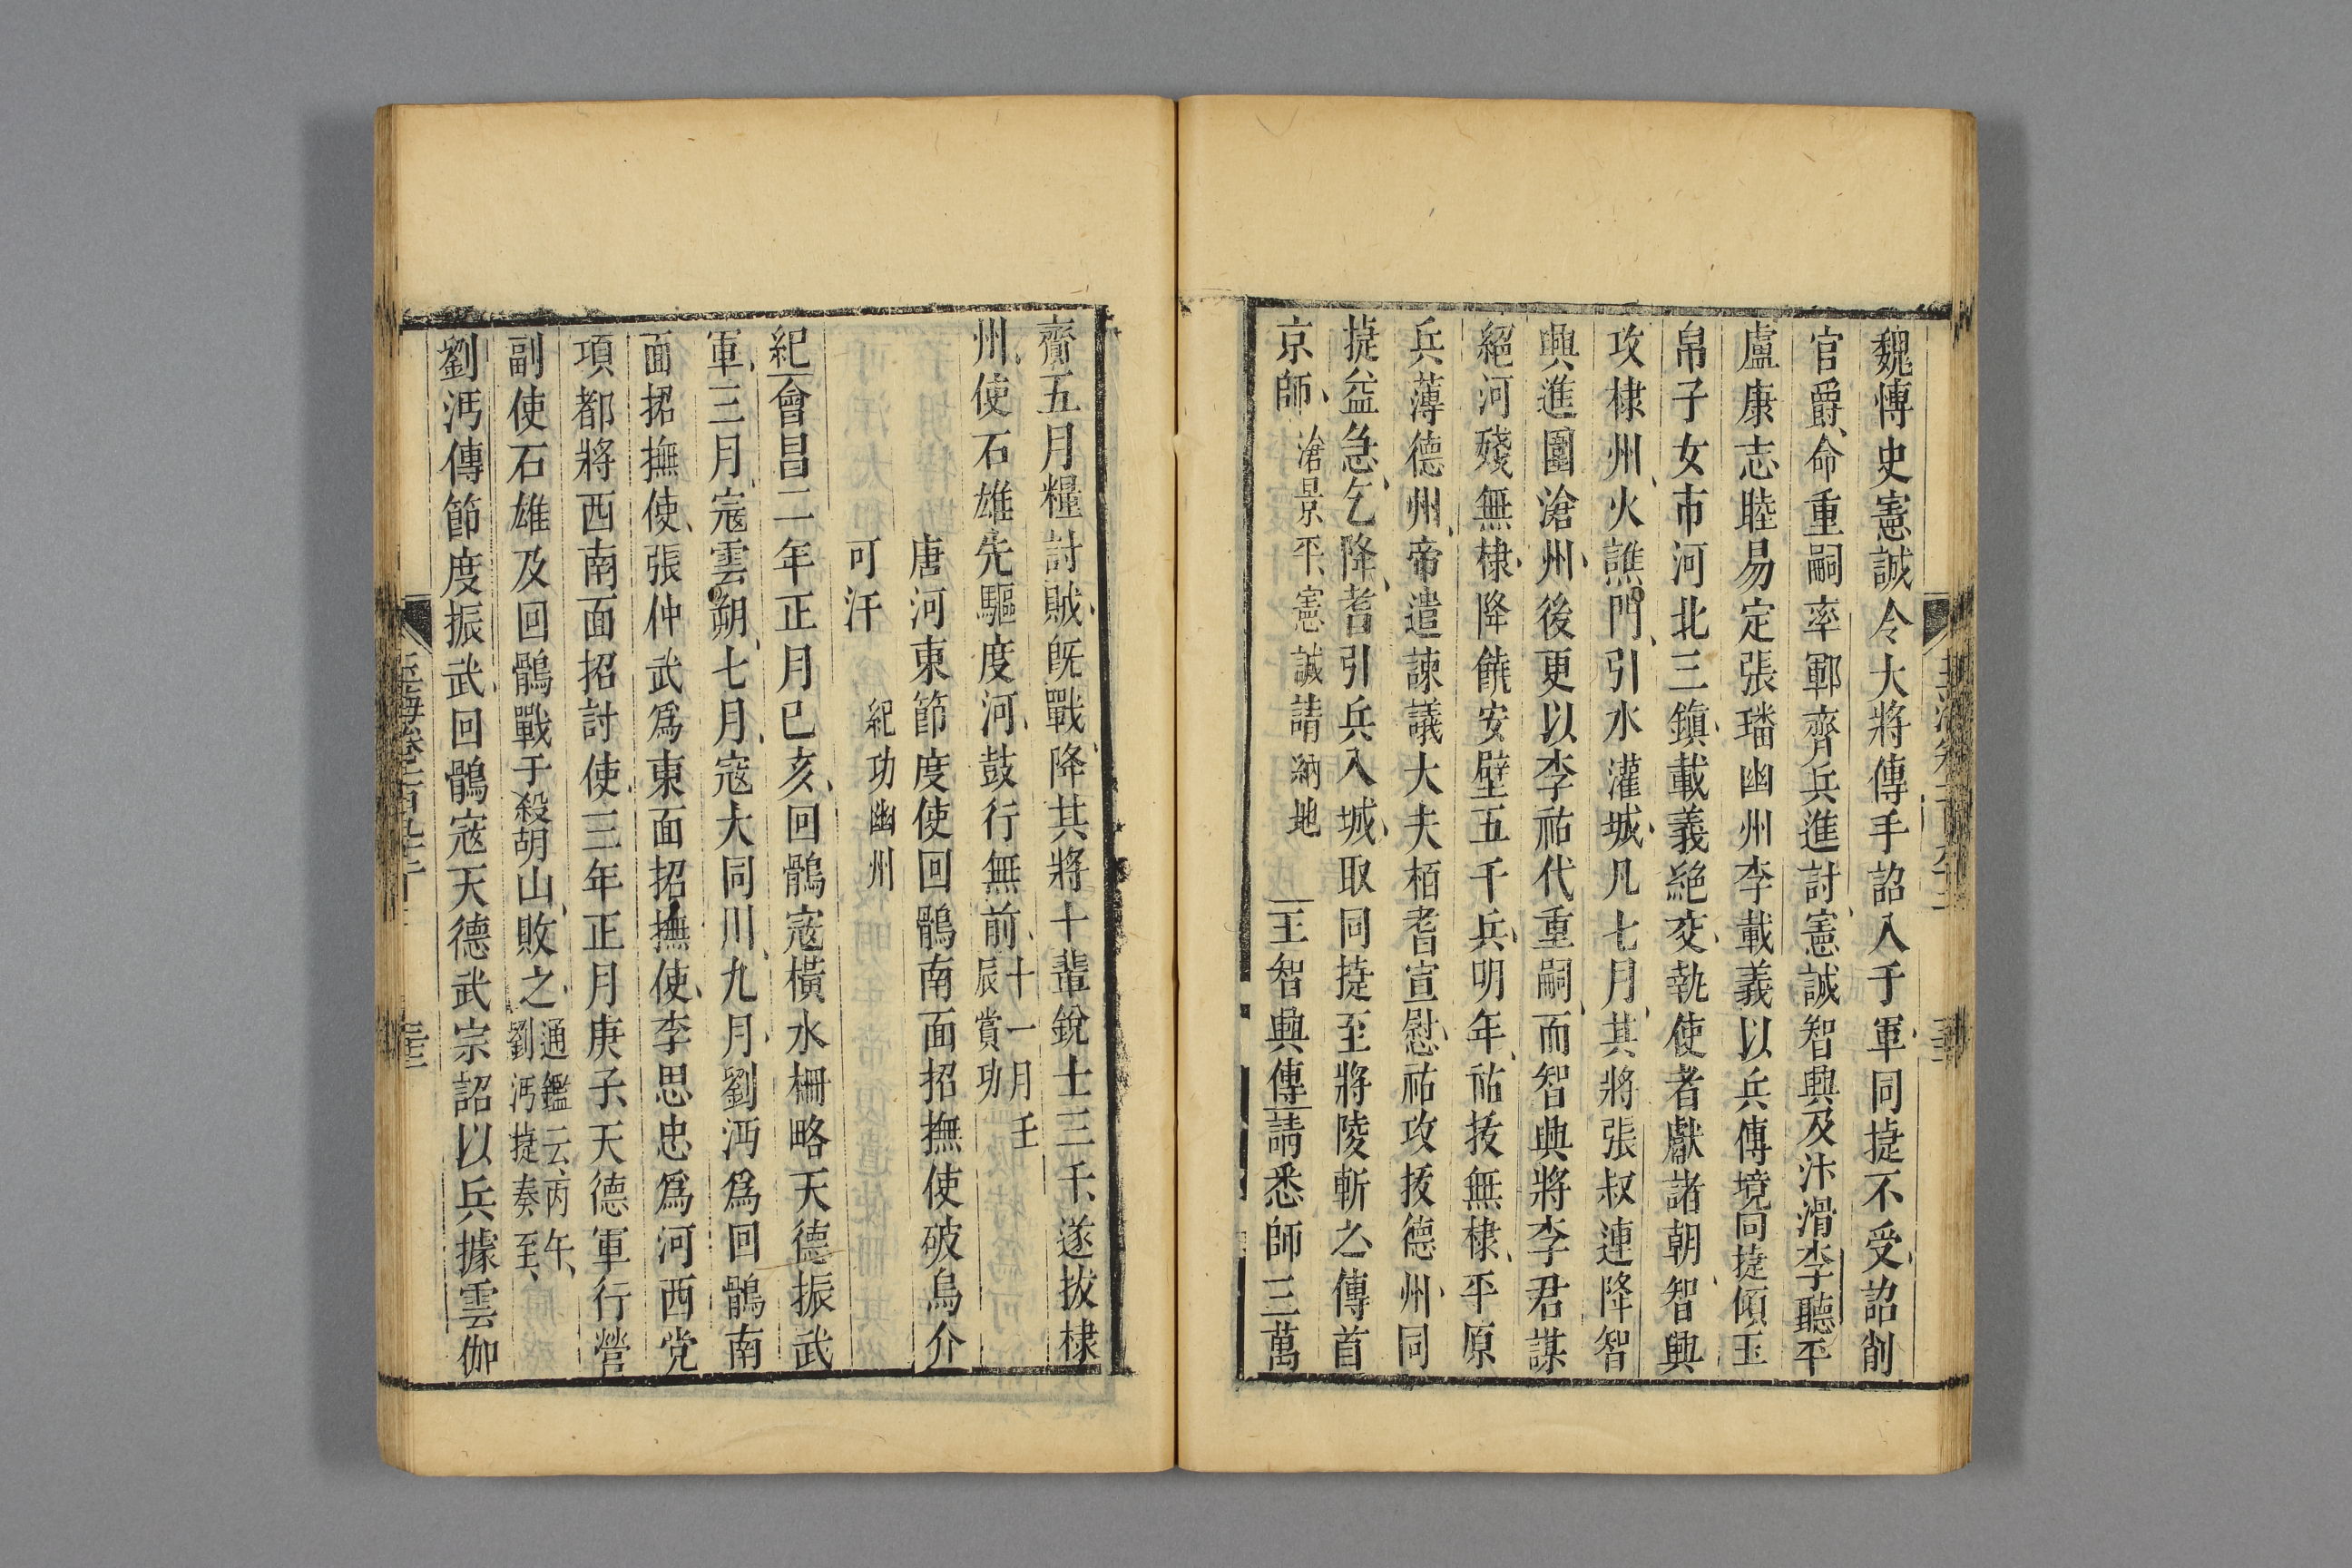 魏博史憲誠令大將傳手詔入于軍同㨗不受詔削
官爵命重嗣率鄆齊兵進討憲誠智興及汴滑李聽平
盧康志睦易定張璠幽州李載義以兵傅境同㨗傾玉
帛子女市河北三鎮載義絕交執使者獻諸朝智興
攻棣州火譙門引水灌城凡七月其將張叔連降智
興進圍滄州後更以李祐代重嗣而智興將李君謀
絕河殘無棣降饒安壁五千兵明年祐拔無棣平原
兵薄德州帝遣諫議大夫栢耆宣慰祐攻拔德州同
㨗益急乞降耆引兵入城取同㨗至將陵斬之傳首
京師滄景平憲誠請納地王智興傳請悉師三萬
齎五月糧討賊旣戰降其將十輩銳士三千遂拔棣
州使石雄先驅度河鼓行無前十一月壬辰賞功
唐河東節度使回鶻南面招撫使破烏介
可汗紀功幽州
紀會昌二年正月己亥回鶻寇橫水柵略天德振武
軍三月寇雲朔七月寇大同川九月劉沔爲回鶻南
面招撫使張仲武爲東面招撫使李思忠爲河西党
項都將西南面招討使三年正月庚子天德軍行營
副使石雄及回鶻戰于殺胡山敗之通鑑云丙午劉沔㨗奏至
劉沔傳節度振武回鶻寇天德武宗詔以兵據雲伽